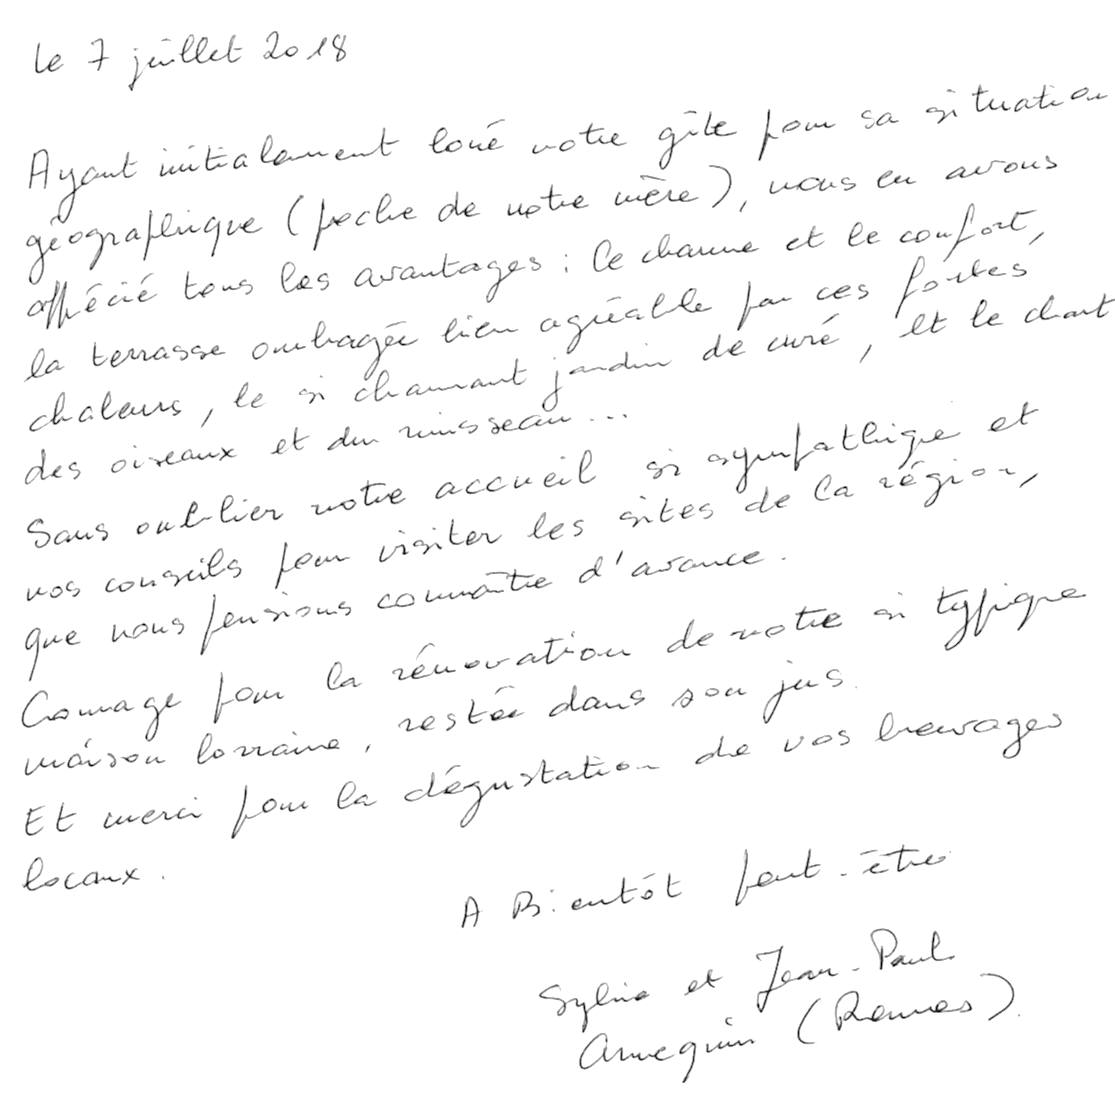 le 7 juillet 2018
Ayant initialement loué votre gîte pour sa situation
géographique (proche de notre mère), nous en avons
apprécié tous les avantages : le charme et le confort,
la terrasse ombragée bien agréable par ces fortes
chaleurs, le si charmant jardin de curé, et le chant
des oiseaux et du ruisseau...
Sans oublier votre accueil si sympathique et
vos conseils pour visiter les sites de la région,
que nous pensions connaître d'avance.
Courage pour la rénovation de votre si typique
maison lorraine, restée dans son jus.
Et merci pour la dégustation de vos breuvages
locaux.
A Bientôt peut-être
Sylvie et Jean-Paul
Annequin (Rennes).